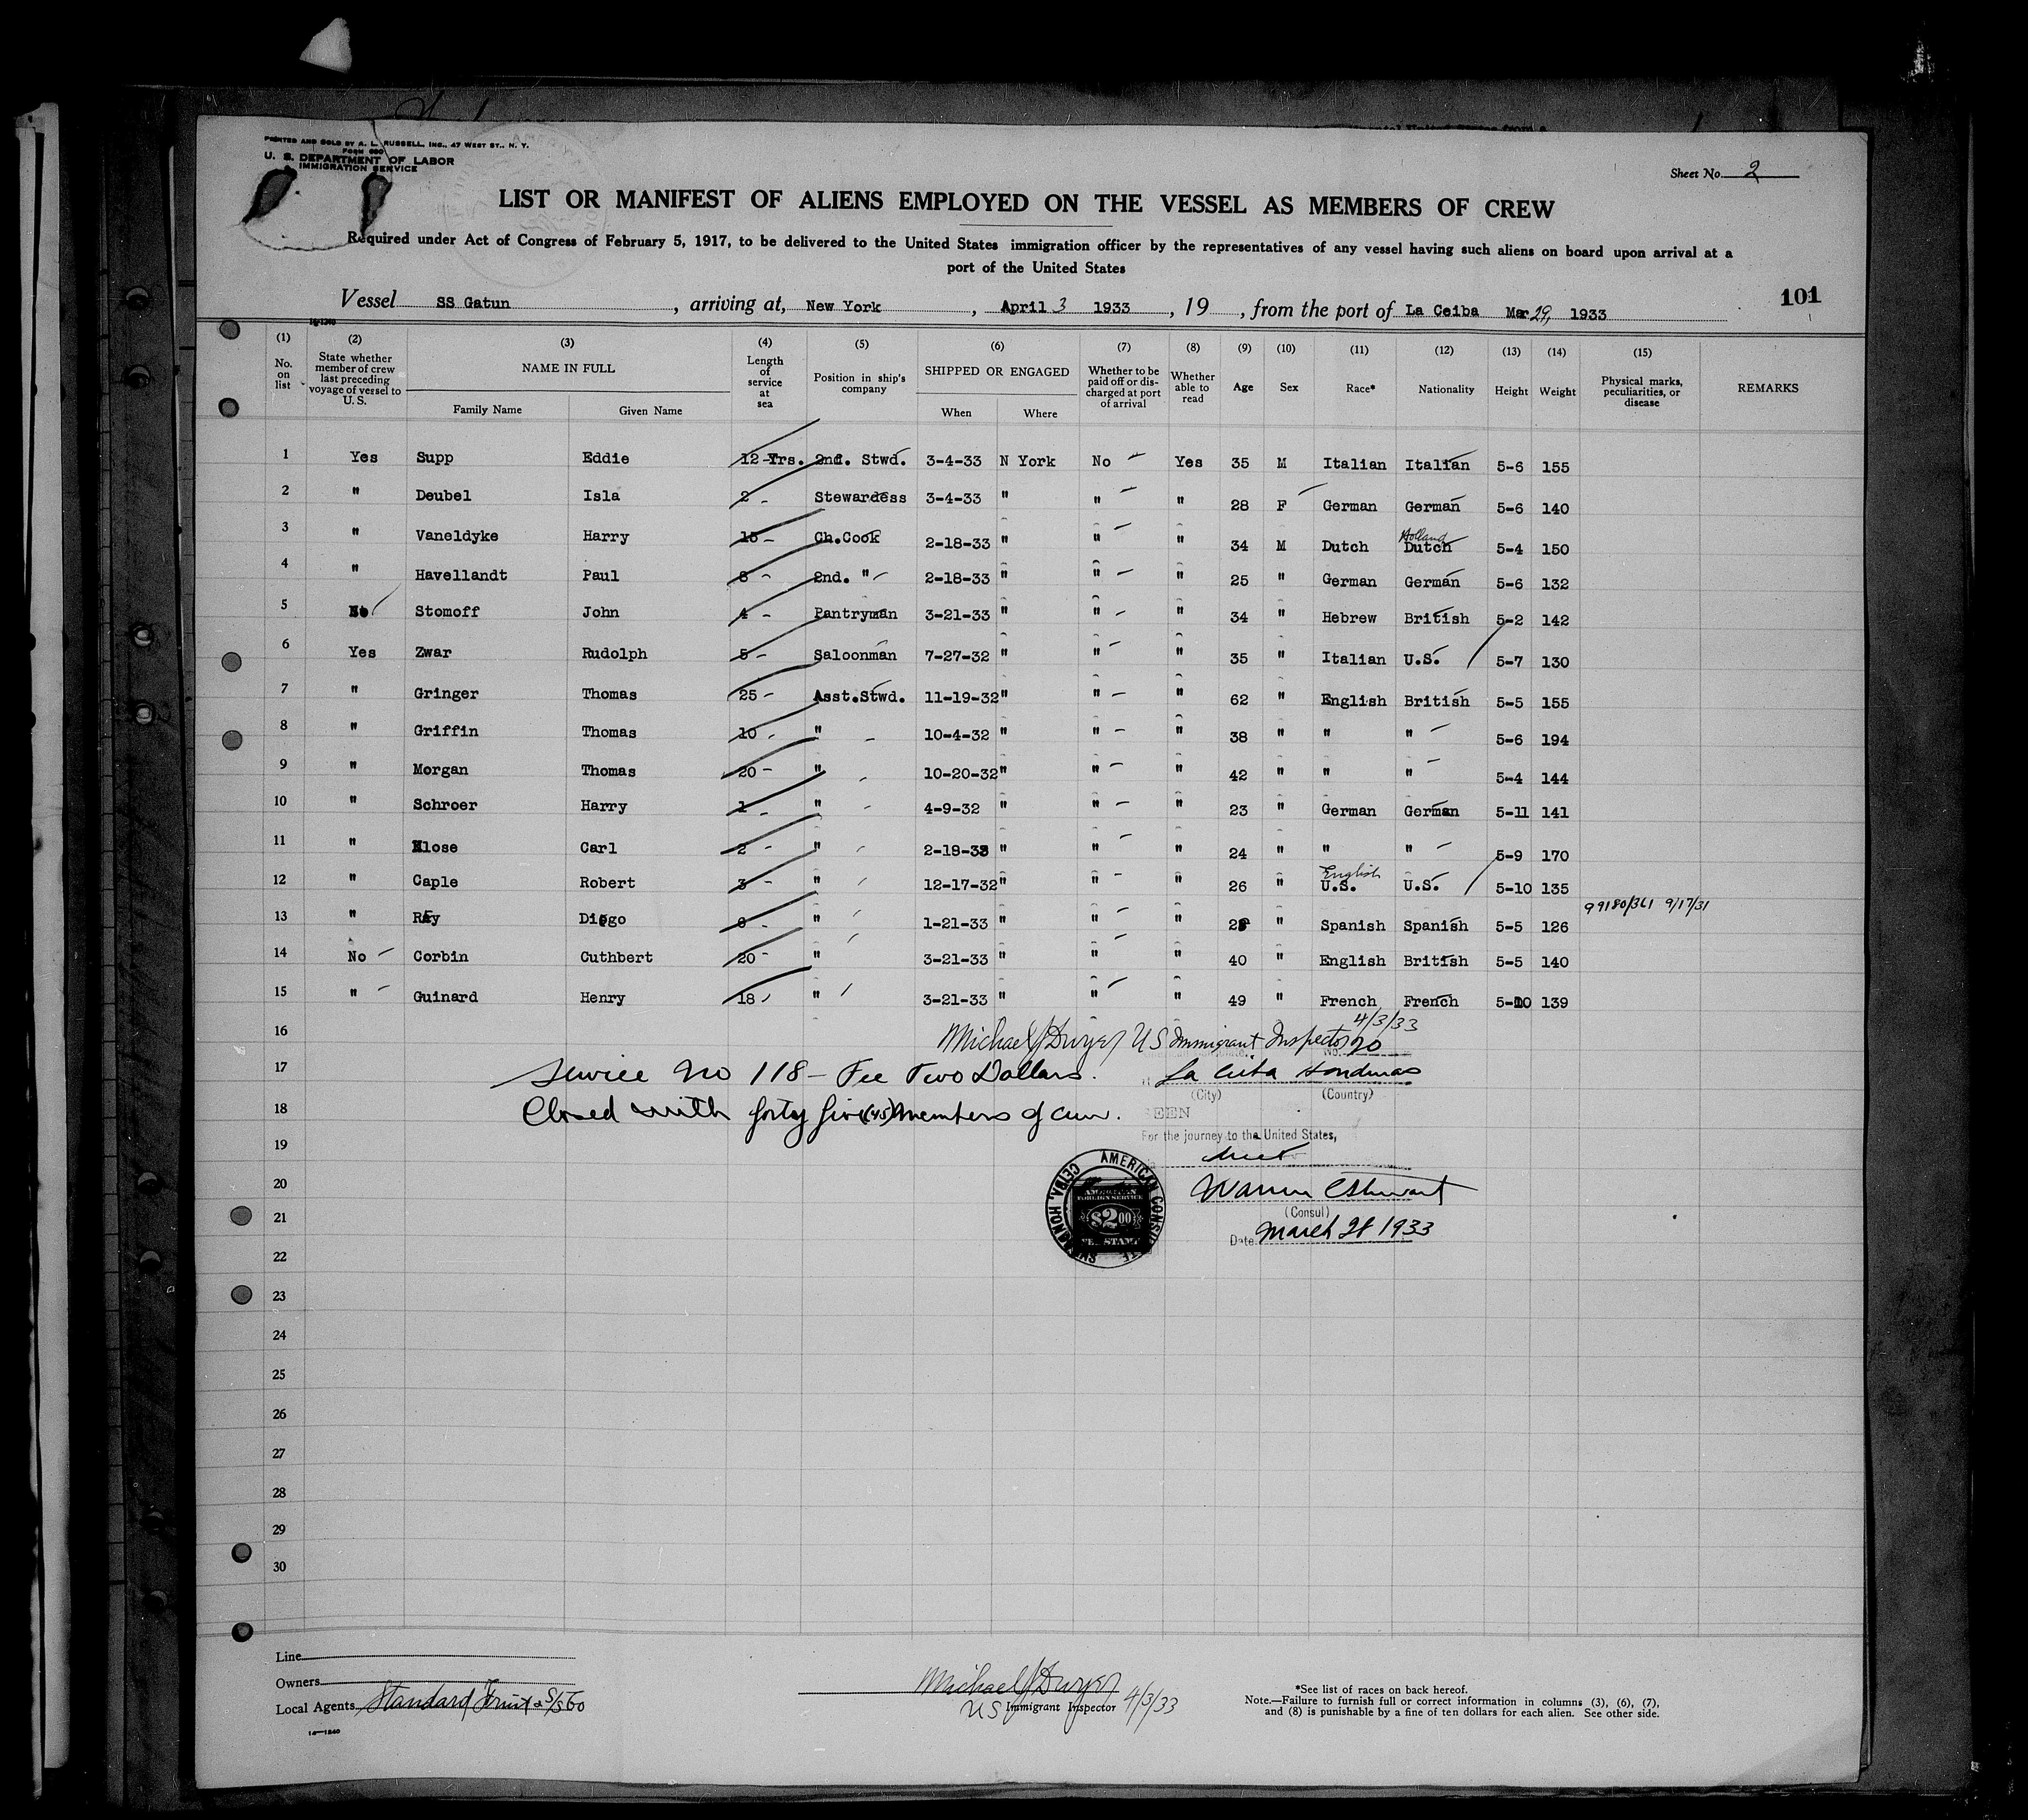 PRINTED AND SOLD BY A. L. RUSSELL, INC., 47 WEST ST., N. Y.
FORM 680
U. S. DEPARTMENT OF LABOR
IMMIGRATION SERVICE
Sheet No. 2
LIST OR MANIFEST OF ALIENS EMPLOYED ON THE VESSEL AS MEMBERS OF CREW
Required under Act of Congress of February 5, 1917, to be delivered to the United States immigration officer by the representatives of any vessel having such aliens on board upon arrival at a
port of the United States
Vessel SS Gatun, arriving at, New York, April 3 1933, 19, from the port of La Ceiba Mar 29, 1933
101
(1) No. on list
(2) State whether member of crew last preceding voyage of vessel to U. S.
(3) NAME IN FULL Family Name Given Name
(4) Length of service at sea
(5) Position in ship's company
(6) SHIPPED OR ENGAGED When Where
(7) Whether to be paid off or discharged at port of arrival
(8) Whether able to read
(9) Age
(10) Sex
(11) Race*
(12) Nationality
(13) Height
(14) Weight
(15) Physical marks, peculiarities, or disease
REMARKS
1 Yes Supp Eddie 12 Yrs. 2nd. Stwd. 3-4-33 N York No Yes 35 M Italian Italian 5-6 155
2 " Deubel Isla 2 - Stewardess 3-4-33 " " " 28 F German German 5-6 140
Holland
3 " Vaneldyke Harry 15 - Ch.Cook 2-18-33 " " " 34 M Dutch Dutch 5-4 150
4 " Havellandt Paul 8 - 2nd. " 2-18-33 " " " 25 " German German 5-6 132
5 No Stomoff John 4 - Pantryman 3-21-33 " " " 34 " Hebrew British 5-2 142
6 Yes Zwar Rudolph 5 - Saloonman 7-27-32 " " " 35 " Italian U.S. 5-7 130
7 " Gringer Thomas 25 - Asst.Stwd. 11-19-32 " " " 62 " English British 5-5 155
8 " Griffin Thomas 10 - " 10-4-32 " " " 38 " " " 5-6 194
9 " Morgan Thomas 20 - " 10-20-32 " " " 42 " " " 5-4 144
10 " Schroer Harry 1 - " 4-9-32 " " " 23 " German German 5-11 141
11 " Klose Carl 2 - " 2-18-33 " " " 24 " " " 5-9 170
English
12 " Caple Robert 3 - " 12-17-32 " " " 26 " U.S. U.S. 5-10 135
99180/361 9/17/31
13 " Rey Diego - " 1-21-33 " " " " Spanish Spanish 5-5 126
14 No Corbin Cuthbert 20 - " 3-21-33 " " " 40 " English British 5-5 140
15 " Guinard Henry 18 " 3-21-33 " " " 49 " French French 5-10 139
4/3/33
16 Michael J Dwyer US Immigrant Inspector
No. 90
17 Service No 118 - Fee Two Dollars. La Ceiba Honduras
(City) (Country)
18 Closed with forty five (45) members of crew. SEEN
19 For the journey to the United States,
direct
20 Warren C Stewart
AMERICAN CONSULATE CEIBA, HONDURAS
AMERICAN FOREIGN SERVICE $2.00 FEE STAMP
21 (Consul)
Date March 28 1933
22
23
24
25
26
27
28
29
30
Line
Owners
Local Agents Standard Fruit & S/S Co
14—1240
Michael J Dwyer
US Immigrant Inspector 4/3/33
*See list of races on back hereof.
Note.—Failure to furnish full or correct information in columns (3), (6), (7),
and (8) is punishable by a fine of ten dollars for each alien. See other side.